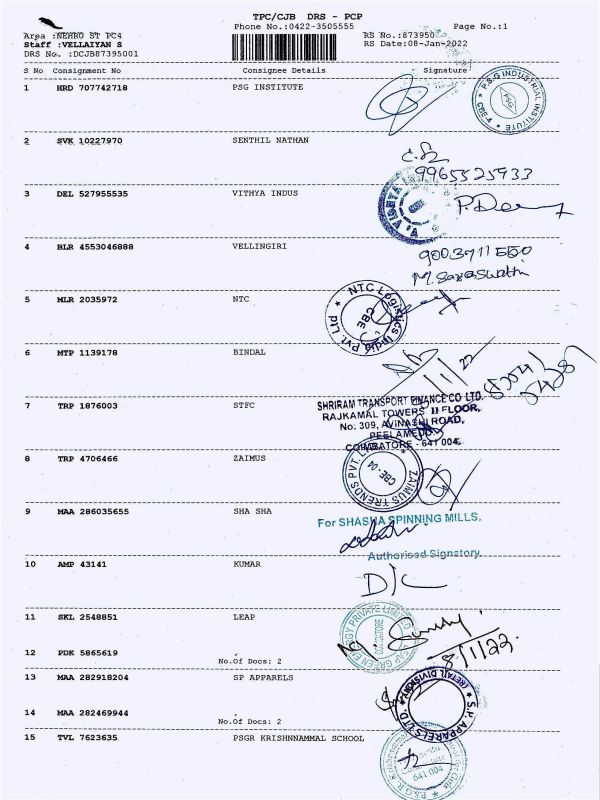 TPC/CJB DRS - PCP
Phone No.:0422-3505555 Page No.:1
Area :NEHRO ST PC4 RS No.:873950
Staff :VELLAIYAN S RS Date:08-Jan-2022
DRS No. :DCJB87395001
S No Consignment No Consignee Details Signature
1 HRD 707742718 PSG INSTITUTE
P.S.G INDUSTRIAL INSTITUTE CBE-4 PSG
2 SVK 10227970 SENTHIL NATHAN
9965525933
3 DEL 527955535 VITHYA INDUS
4 BLR 4553046888 VELLINGIRI
9003711550
M. Saraswathi
5 MLR 2035972 NTC
NTC Logistics India Pvt. Ltd. CBE
6 MTP 1139178 BINDAL
7 TRP 1876003 STFC
SHRIRAM TRANSPORT FINANCE CO LTD.
RAJKAMAL TOWERS II FLOOR,
No: 309, AVINASHI ROAD,
PEELAMEDU
COIMBATORE - 641 004.
8 TRP 4706466 ZAIMUS
ZAIMUS TRENDS PVT. CBE-04
9 MAA 286035655 SHA SHA
For SHASHA SPINNING MILLS,
Authorised Signatory
10 AMP 43141 KUMAR
D/C
11 SKL 2548851 LEAP
LEAP GREEN ENERGY PRIVATE LIMITED COIMBATORE
8/1/22
12 PDK 5865619
No.Of Docs: 2
13 MAA 282918204 SP APPARELS
S.P. APPARELS LTD (RETAIL DIVISION)
14 MAA 282469944
No.Of Docs: 2
15 TVL 7623635 PSGR KRISHNNAMMAL SCHOOL
641 004